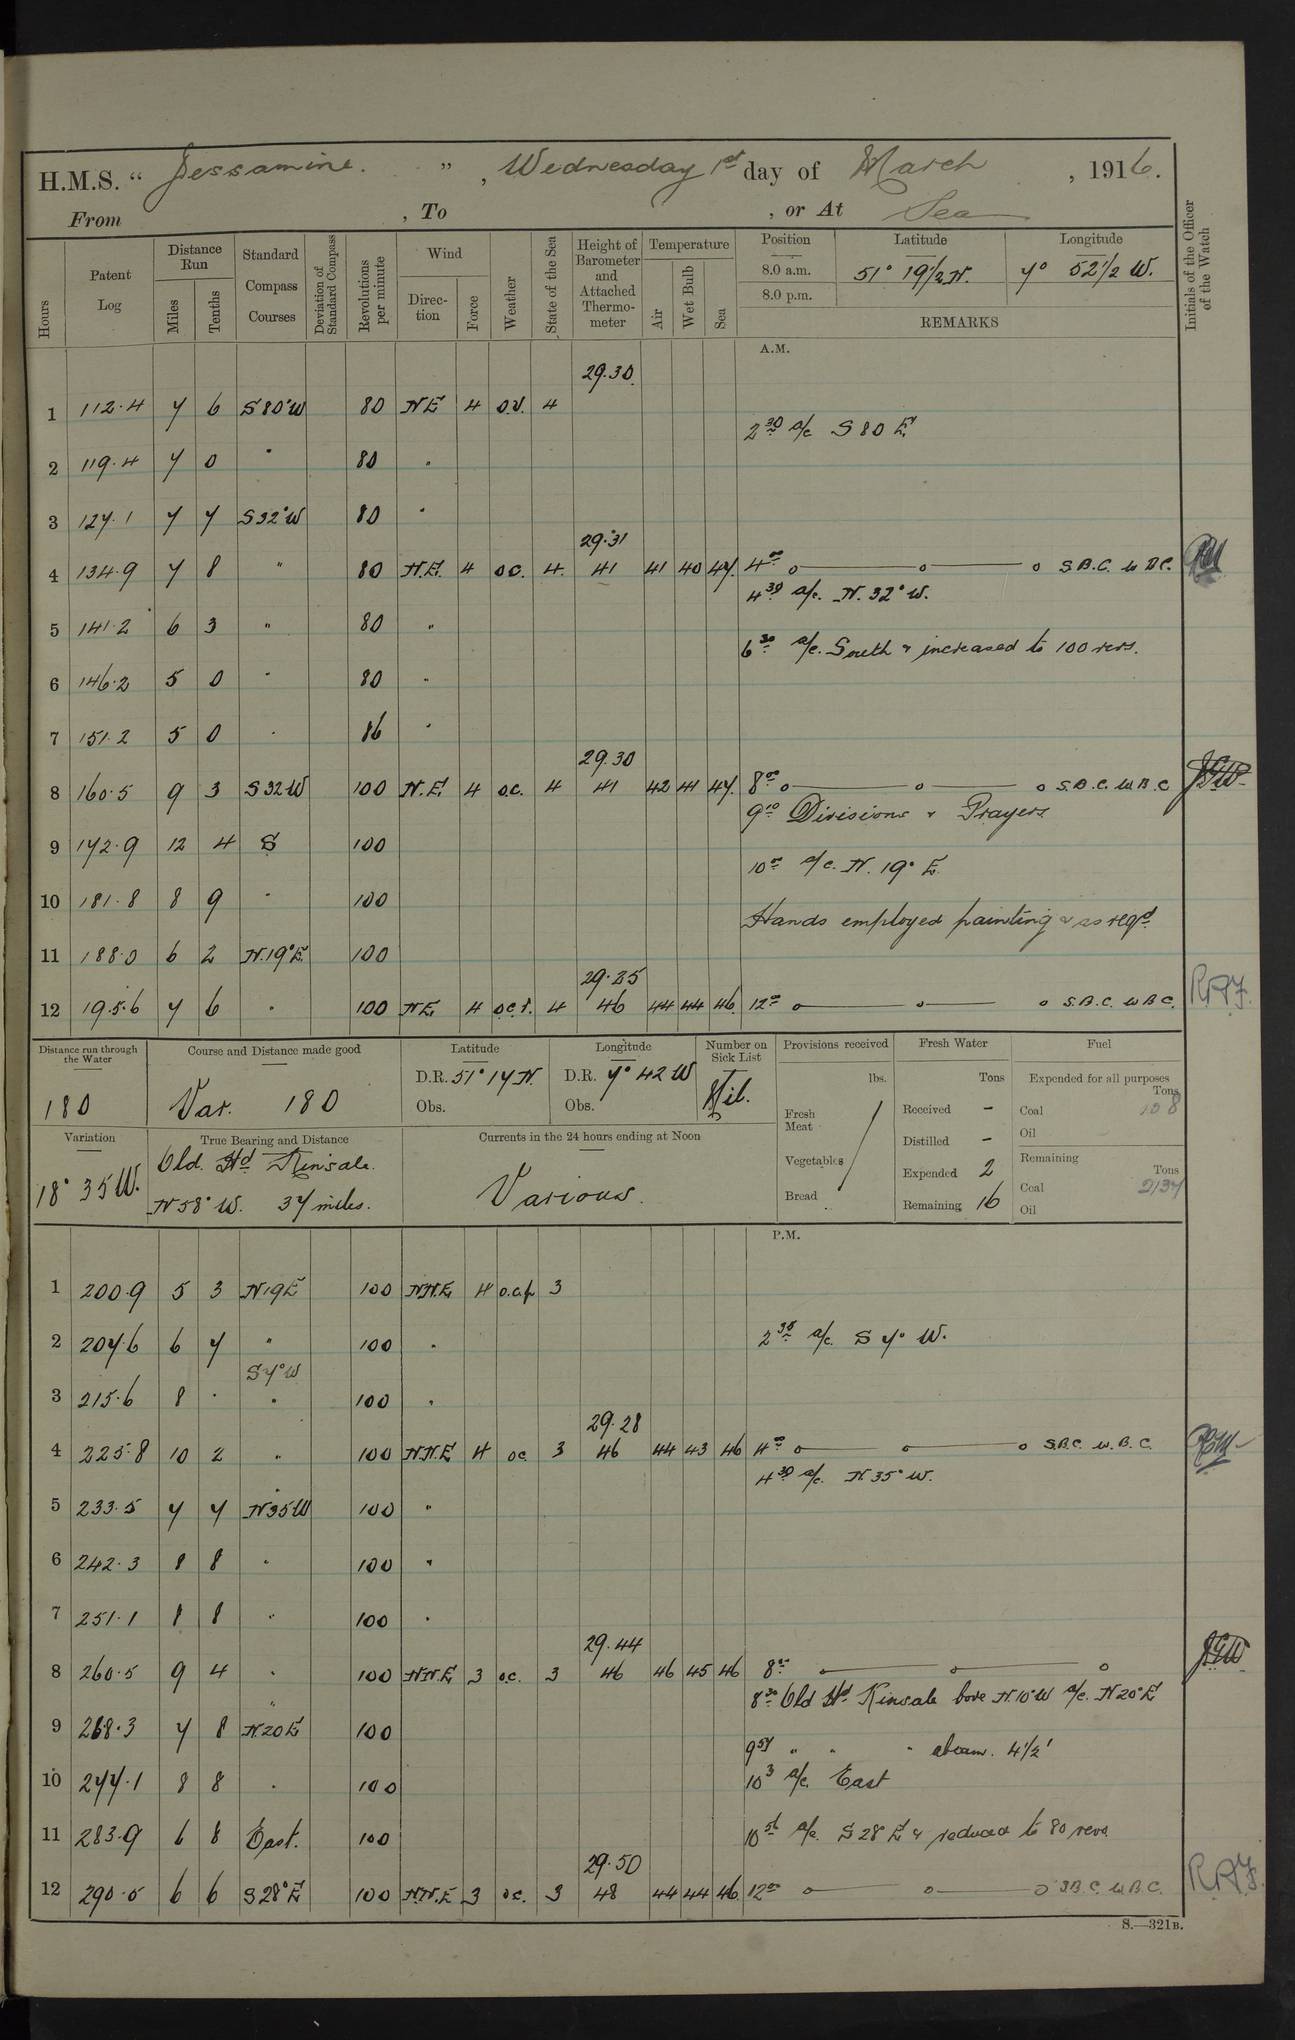 H.M.S. " Jessamine. ", Wednesday 1st day of March, 1916.
From , To , or At Sea
Hours
Patent Log
Distance Run
Miles
Tenths
Standard Compass Courses
Deviation of Standard Compass
Revolutions per minute
Wind
Direction
Force
Weather
State of the Sea
Height of Barometer and Attached Thermometer
Temperature
Air
Wet Bulb
Sea
Position Latitude Longitude
8.0 a.m. 51° 19½ N. 7° 52½ W.
8.0 p.m.
REMARKS
Initials of the Officer of the Watch
A.M.
29.30
1 112.4 7 6 S80°W 80 NE 4 o.v. 4
2 30 a/c S 80 E
2 119.4 7 0 " 80 "
3 127.1 7 7 S32°W 80 "
29.31
4 134.9 7 8 " 80 N.E. 4 o.c. 4 41 41 40 47. 4 00 S.B.C. W.B.C.
4 30 a/c. N. 32° W.
5 141.2 6 3 " 80 "
6 30 a/c. South & increased to 100 revs.
6 146.2 5 0 " 80 "
7 151.2 5 0 " 86 "
29.30
8 160.5 9 3 S32W 100 N.E. 4 o.c. 4 41 42 41 47. 8 00 S.B.C. W.B.C. JGW
9 10 Divisions & Prayers
9 172.9 12 4 S 100
10 00 a/c. N. 19° E.
10 181.8 8 9 " 100
Hands employed painting & as reqd.
11 188.0 6 2 N.19°E. 100
29.25
12 195.6 7 6 " 100 NE. 4 o.c.r. 4 46 44 44 46. 12 00 S.B.C. W.B.C. RAF.
Distance run through the Water
180
Course and Distance made good
Var. 180
Latitude
D.R. 51° 17 N.
Obs.
Longitude
D.R. 7° 42 W
Obs.
Number on Sick List
Nil.
Provisions received
lbs.
Fresh Meat
Vegetables
Bread
Fresh Water
Tons
Received -
Distilled -
Expended 2
Remaining 16
Fuel
Expended for all purposes
Tons
Coal 108
Oil
Remaining
Tons
Coal 2137
Oil
Variation
18° 35 W.
True Bearing and Distance
Old. Hd Kinsale.
N 58° W. 37 miles.
Currents in the 24 hours ending at Noon
Various.
P.M.
1 200.9 5 3 N19E 100 NN.E 4 o.c.p 3
2 207.6 6 7 " 100 "
2 35 a/c. S 7° W.
S7°W
3 215.6 8 . " 100 "
29.28
4 225.8 10 2 " 100 NN.E 4 oc. 3 46 44 43 46 4 00 S.B.C. W.B.C.
4 30 a/c. N. 35° W.
5 233.5 7 7 N35W 100 "
6 242.3 8 8 " 100 "
7 251.1 8 8 " 100 "
29.44
8 260.5 9 4 " 100 NN.E 3 o.c. 3 46 46 45 46 8 00 JGW
8 30 Old Hd. Kinsale bore N.10°W a/c. N20°E
9 268.3 7 8 N.20E 100
9 57 " " " abeam. 4½'
10 277.1 8 8 " 100
10 3 a/c. East
11 283.9 6 8 East. 100
10 56 a/c. S 28° E & reduced to 80 revs.
29.50
12 290.5 6 6 S28°E 100 NN.E 3 oc. 3 48 44 44 46. 12 00 S.B.C. W.B.C. RAF.
S.—321B.